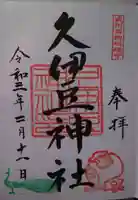 奉拝
久伊豆神社
令和三年二月十一日